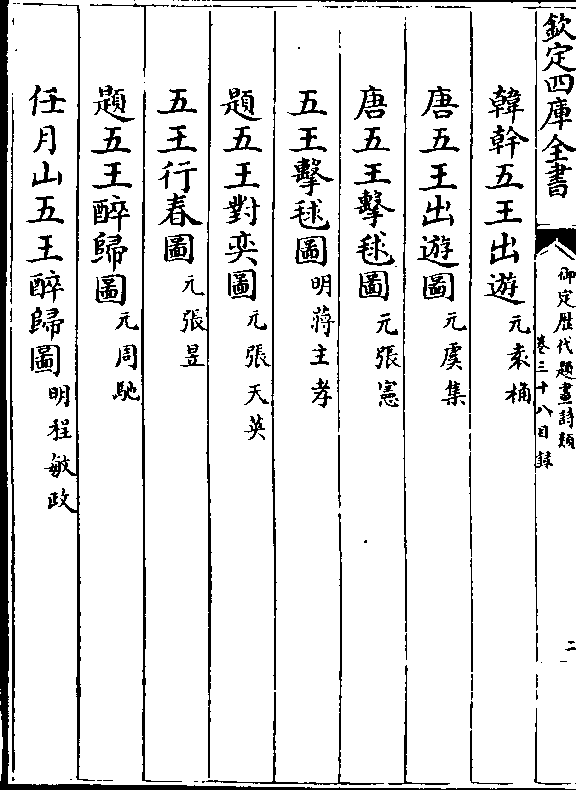 欽定四庫全書
御定歴代題畫詩類
卷三十八目録
二
韓幹五王出遊元袁桷
唐五王出遊圖元虞集
唐五王擊毬圖元張憲
五王擊毬圖明蔣主孝
題五王對奕圖元張天英
五王行春圖元張昱
題五王醉歸圖元周馳
任月山五王醉歸圖明程敏政